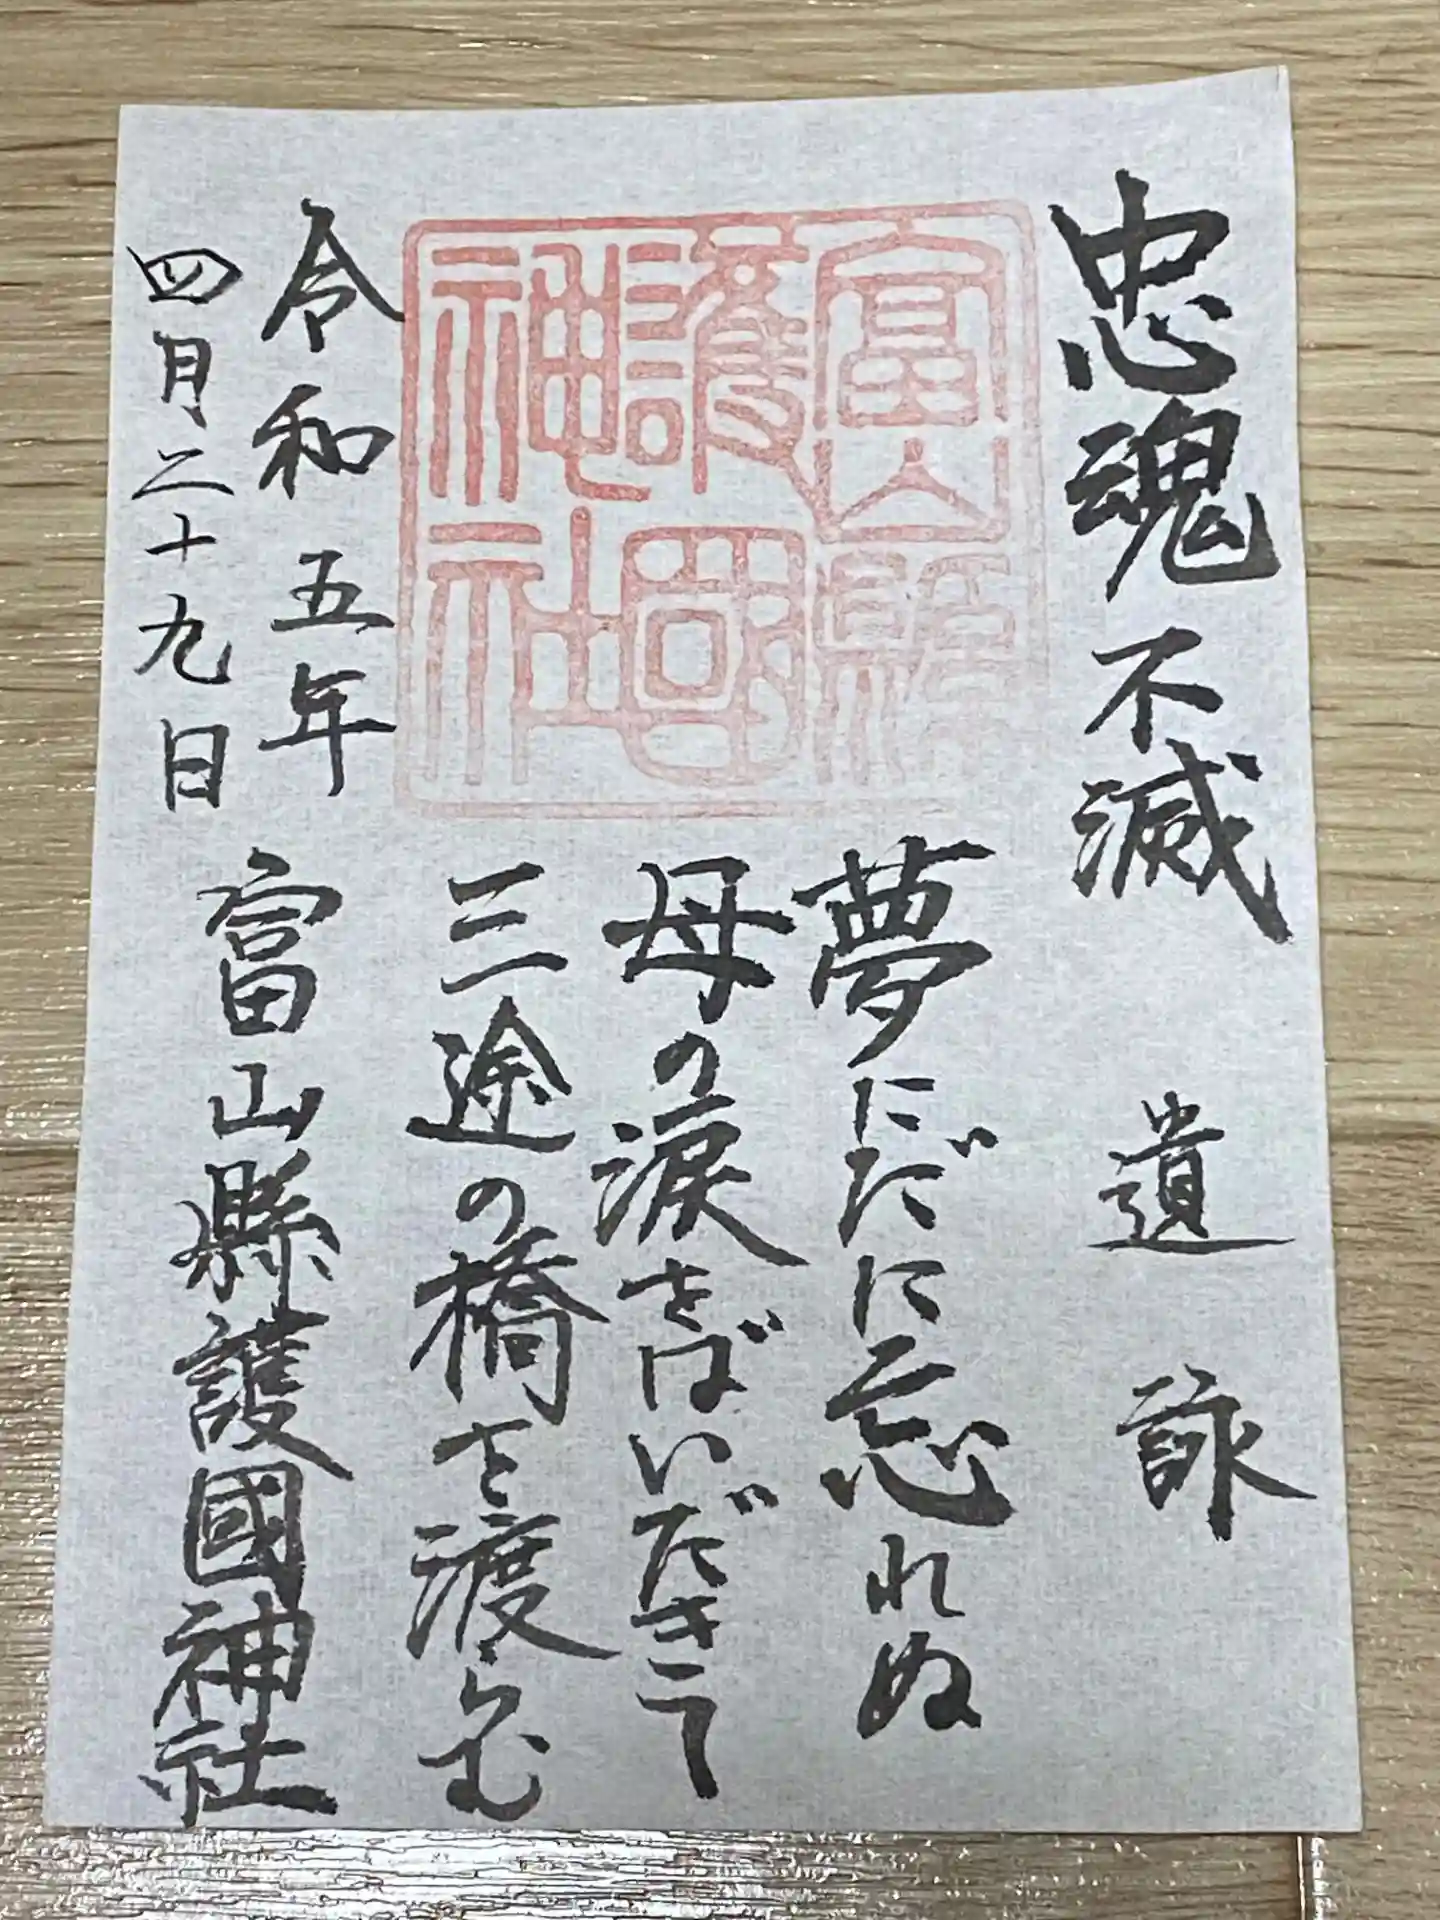 忠魂不滅 遺詠
夢にだに忘れぬ
母の涙をばいだきて
三途の橋を渡らむ
富山縣
護國
神社
令和五年
四月二十九日
富山縣護國神社